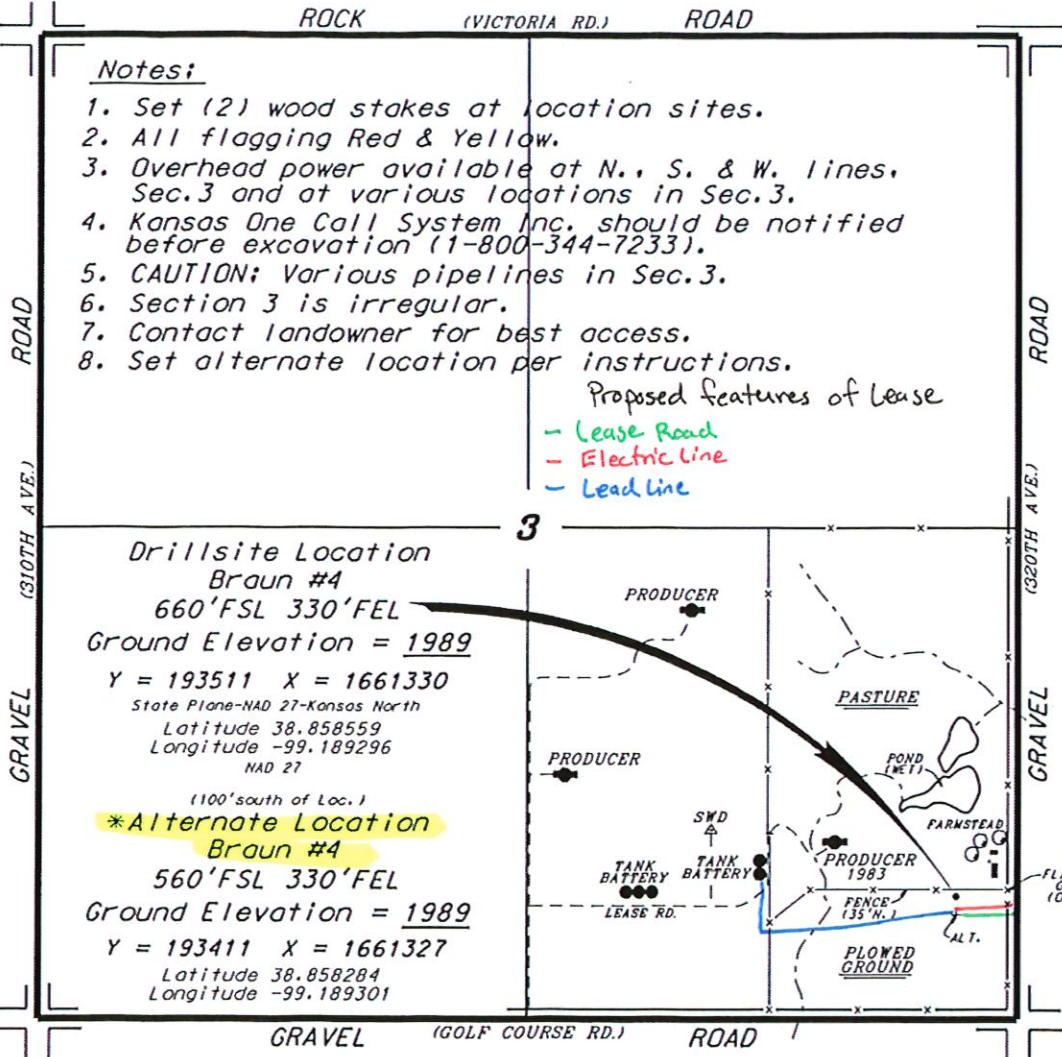 ROCK (VICTORIA RD.) ROAD
Notes:
1. Set (2) wood stakes at location sites.
2. All flagging Red & Yellow.
3. Overhead power available at N., S. & W. lines,
Sec.3 and at various locations in Sec.3.
4. Kansas One Call System Inc. should be notified
before excavation (1-800-344-7233).
5. CAUTION: Various pipelines in Sec.3.
6. Section 3 is irregular.
7. Contact landowner for best access.
8. Set alternate location per instructions.
Proposed features of Lease
- Lease Road
- Electric Line
- Lead Line
GRAVEL (310TH AVE.) ROAD
GRAVEL (320TH AVE.) ROAD
3
Drillsite Location
Braun #4
660'FSL 330'FEL
Ground Elevation = 1989
Y = 193511 X = 1661330
State Plane-NAD 27-Kansas North
Latitude 38.858559
Longitude -99.189296
NAD 27
(100'south of Loc.)
*Alternate Location
Braun #4
560'FSL 330'FEL
Ground Elevation = 1989
Y = 193411 X = 1661327
Latitude 38.858284
Longitude -99.189301
PRODUCER
PASTURE
PRODUCER
POND
(WET)
SWD
FARMSTEAD
TANK
BATTERY
TANK
BATTERY
PRODUCER
1983
LEASE RD.
FENCE
(35'N.)
ALT.
PLOWED
GROUND
GRAVEL (GOLF COURSE RD.) ROAD